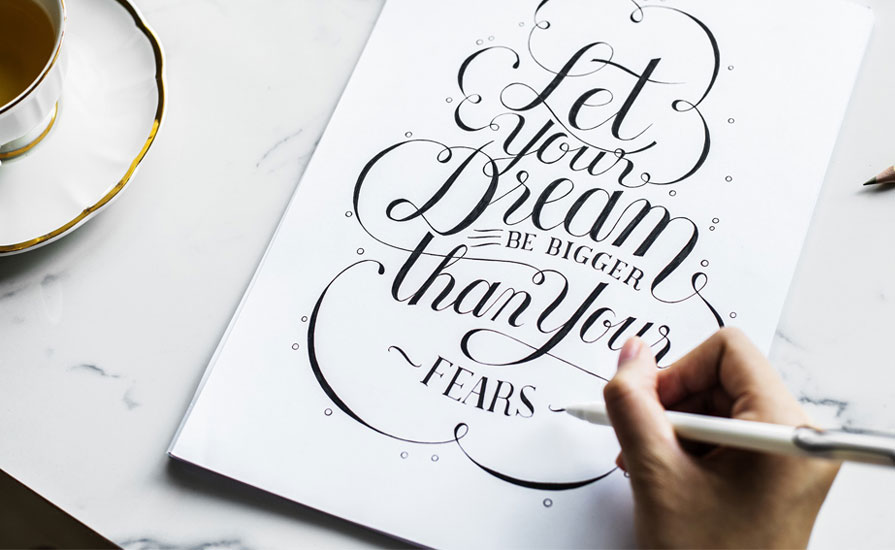 Let
your
Dream
BE BIGGER
than Your
FEARS